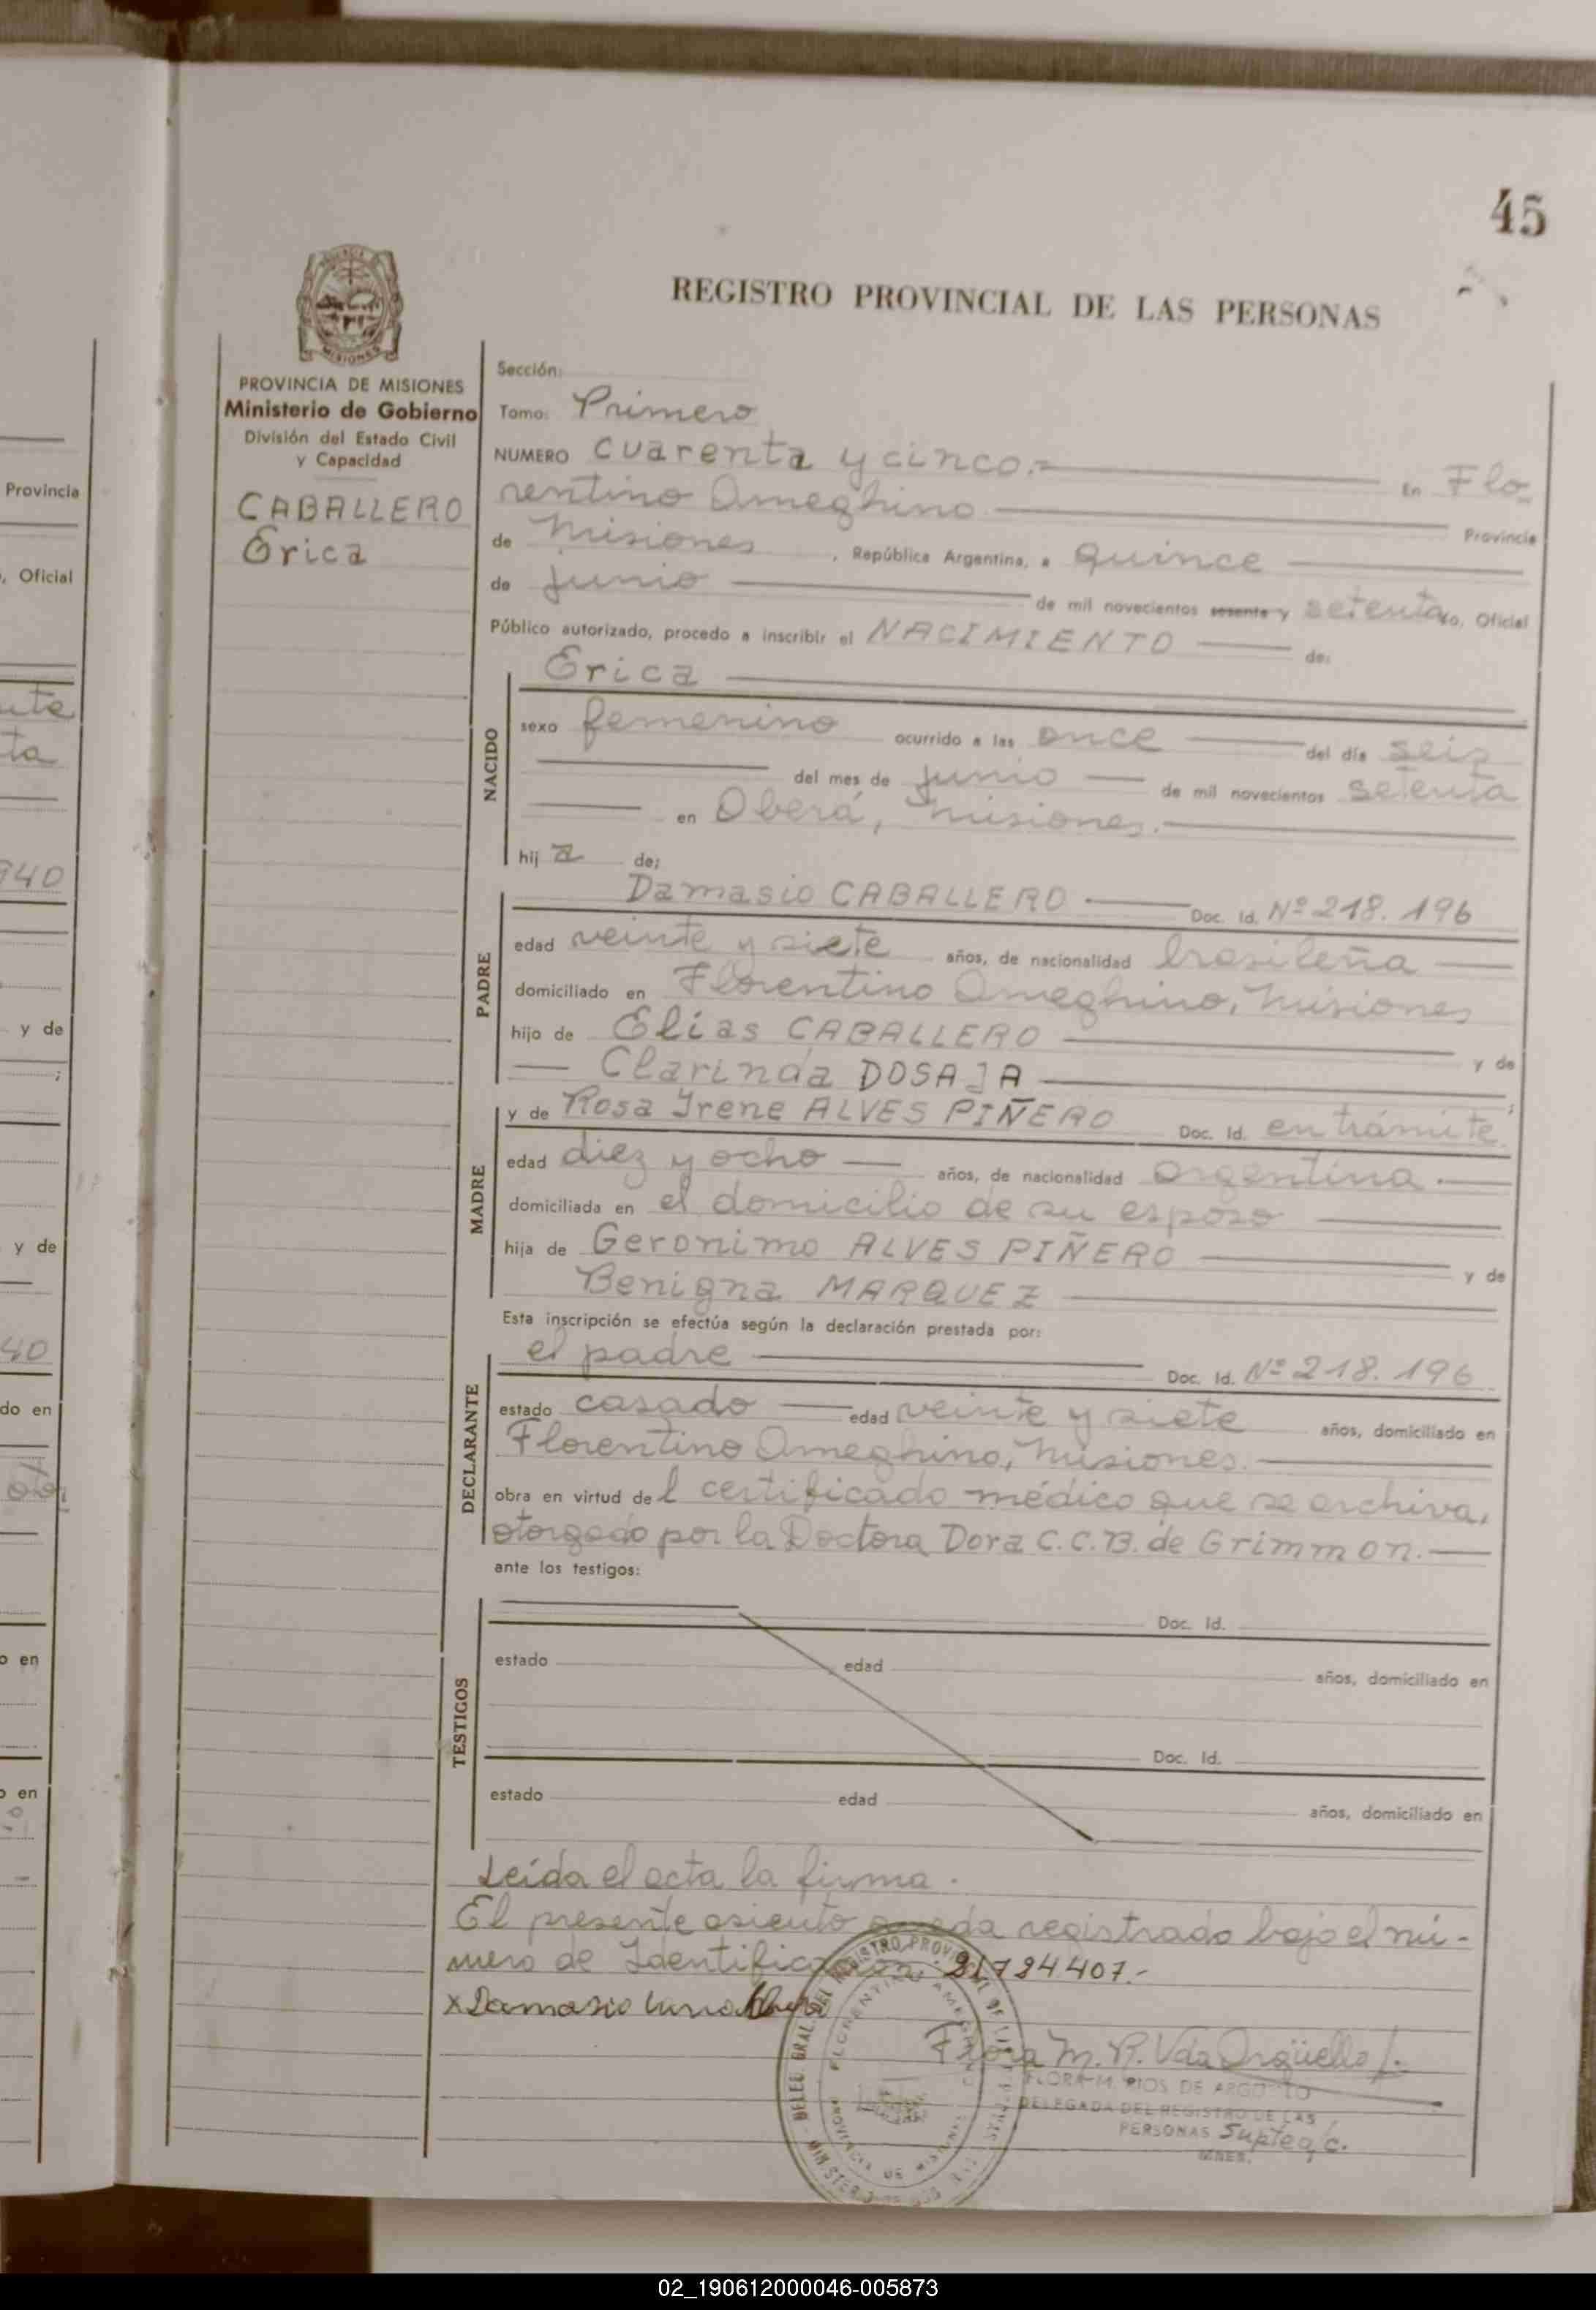 45
REGISTRO PROVINCIAL DE LAS PERSONAS
PROVINCIA DE MISIONES
Ministerio de Gobierno
División del Estado Civil
y Capacidad
CABALLERO
Erica
Sección:
Tomo: Primero
NUMERO cuarenta y cinco.= En Flo
rentino Ameghino. Provincia
de Misiones, República Argentina, a quince
de junio de mil novecientos sesenta y setenta yo, Oficial
Público autorizado, procedo a inscribir el NACIMIENTO de:
Erica
NACIDO
sexo femenino ocurrido a las once del día seis
del mes de junio de mil novecientos setenta
en Oberá, Misiones.
hija de:
PADRE
Damasio CABALLERO Doc. Id. Nº 218.196
edad veinte y siete años, de nacionalidad brasileña
domiciliado en Florentino Ameghino, Misiones
hijo de Elias CABALLERO y de
Clarinda DOSAJA ;
MADRE
y de Rosa Yrene ALVES PIÑERO Doc. Id. en trámite
edad diez y ocho años, de nacionalidad argentina.
domiciliada en el domicilio de su esposo
hija de Geronimo ALVES PIÑERO y de
Benigna MARQUEZ
Esta inscripción se efectúa según la declaración prestada por:
DECLARANTE
el padre Doc. Id. Nº 218.196
estado casado edad veinte y siete años, domiciliado en
Florentino Ameghino, Misiones.
obra en virtud del certificado médico que se archiva,
otorgado por la Doctora Dora C. C. B. de Grimmon.
ante los testigos:
TESTIGOS
Doc. Id.
estado edad años, domiciliado en
Doc. Id.
estado edad años, domiciliado en
Leída el acta la firma.
El presente asiento queda registrado bajo el nú-
mero de Identificación: 21724407.-
x Damasio
Flora M. R. Vda Argüello
FLORA M. RIOS DE ARGÜELLO
DELEGADA DEL REGISTRO DE LAS
PERSONAS Suptea/c.
Provincia
, Oficial
940
y de
;
y de
40
do en
o en
o en
02_190612000046-005873